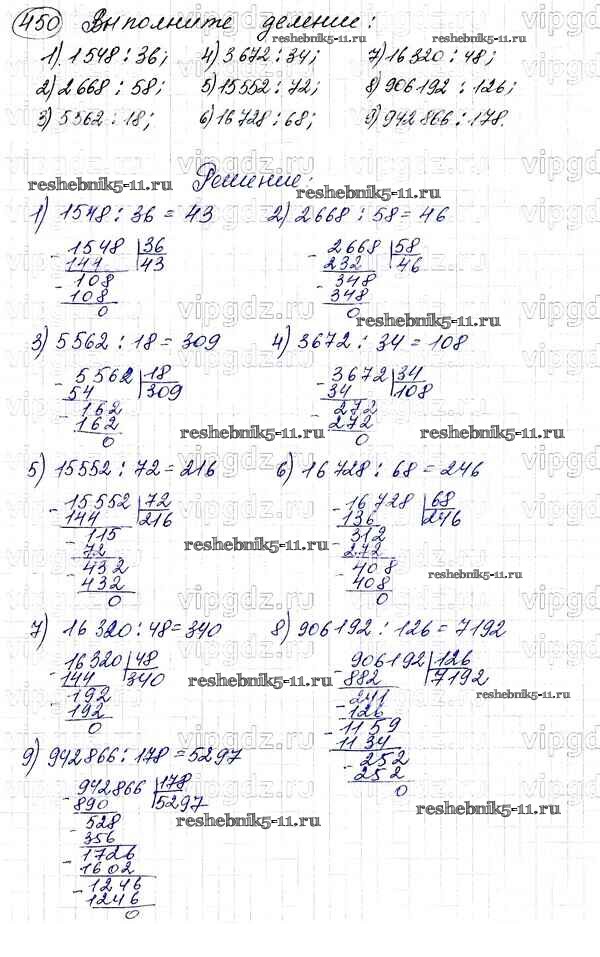 450 Выполните деление:
1). 1548 : 36; 4) 3672 : 34; 7) 16320 : 48;
2) 2668 : 58; 5) 15552 : 72; 8) 906192 : 126;
3) 5562 : 18; 6) 16728 : 68; 9) 942866 : 178.
Решение:
reshebnik5-11.ru reshebnik5-11.ru
1) 1548 : 36 = 43 2) 2668 : 58 = 46
- 1548 | 36 - 2668 | 58
144 43 232 46
- 108 - 348
108 348
0 0
reshebnik5-11.ru
3) 5562 : 18 = 309 4) 3672 : 34 = 108
- 5562 | 18 - 3672 | 34
54 309 34 108
- 162 - 272
162 272
0 0
reshebnik5-11.ru reshebnik5-11.ru
5) 15552 : 72 = 216 6) 16728 : 68 = 246
- 15552 | 72 - 16728 | 68
144 216 136 246
- 115 - 312
72 272
- 432 - 408
432 408
0 0
reshebnik5-11.ru reshebnik5-11.ru
7) 16320 : 48 = 340 8) 906192 : 126 = 7192
- 16320 | 48 - 906192 | 126
144 340 882 7192
- 192 - 241
192 126
0 - 1159
1134
- 252
252
0
reshebnik5-11.ru reshebnik5-11.ru
9) 942866 : 178 = 5297
- 942866 | 178
890 5297
- 528
356
- 1726
1602
- 1246
1246
0
reshebnik5-11.ru
vipgdz.ru